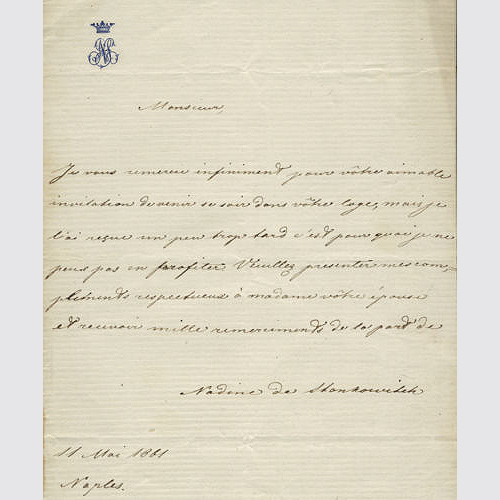 NS
Monsieur,
Je vous remercie infiniment pour vôtre aimable
invitation de venir ce soir dans vôtre loge, mais je
l'ai reçue un peu trop tard c'est pourquoi je ne
peus pas en profiter Veuillez presenter mes com,=
pléments respectueux à madame vôtre épouse
et recevoir mille remerciments de la part de
Nadine de Stankowitch
11 Mai 1861
Naples.